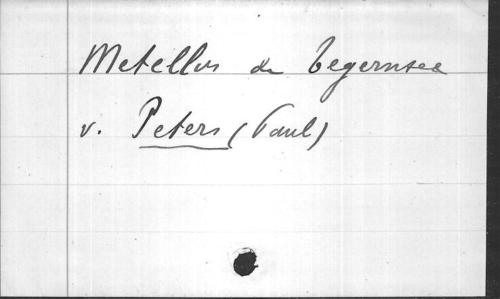 Metellus de Tegernsee
v. Peters (Paul)